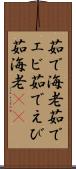 茹で海老茹で
エビ茹でえび
茹海老